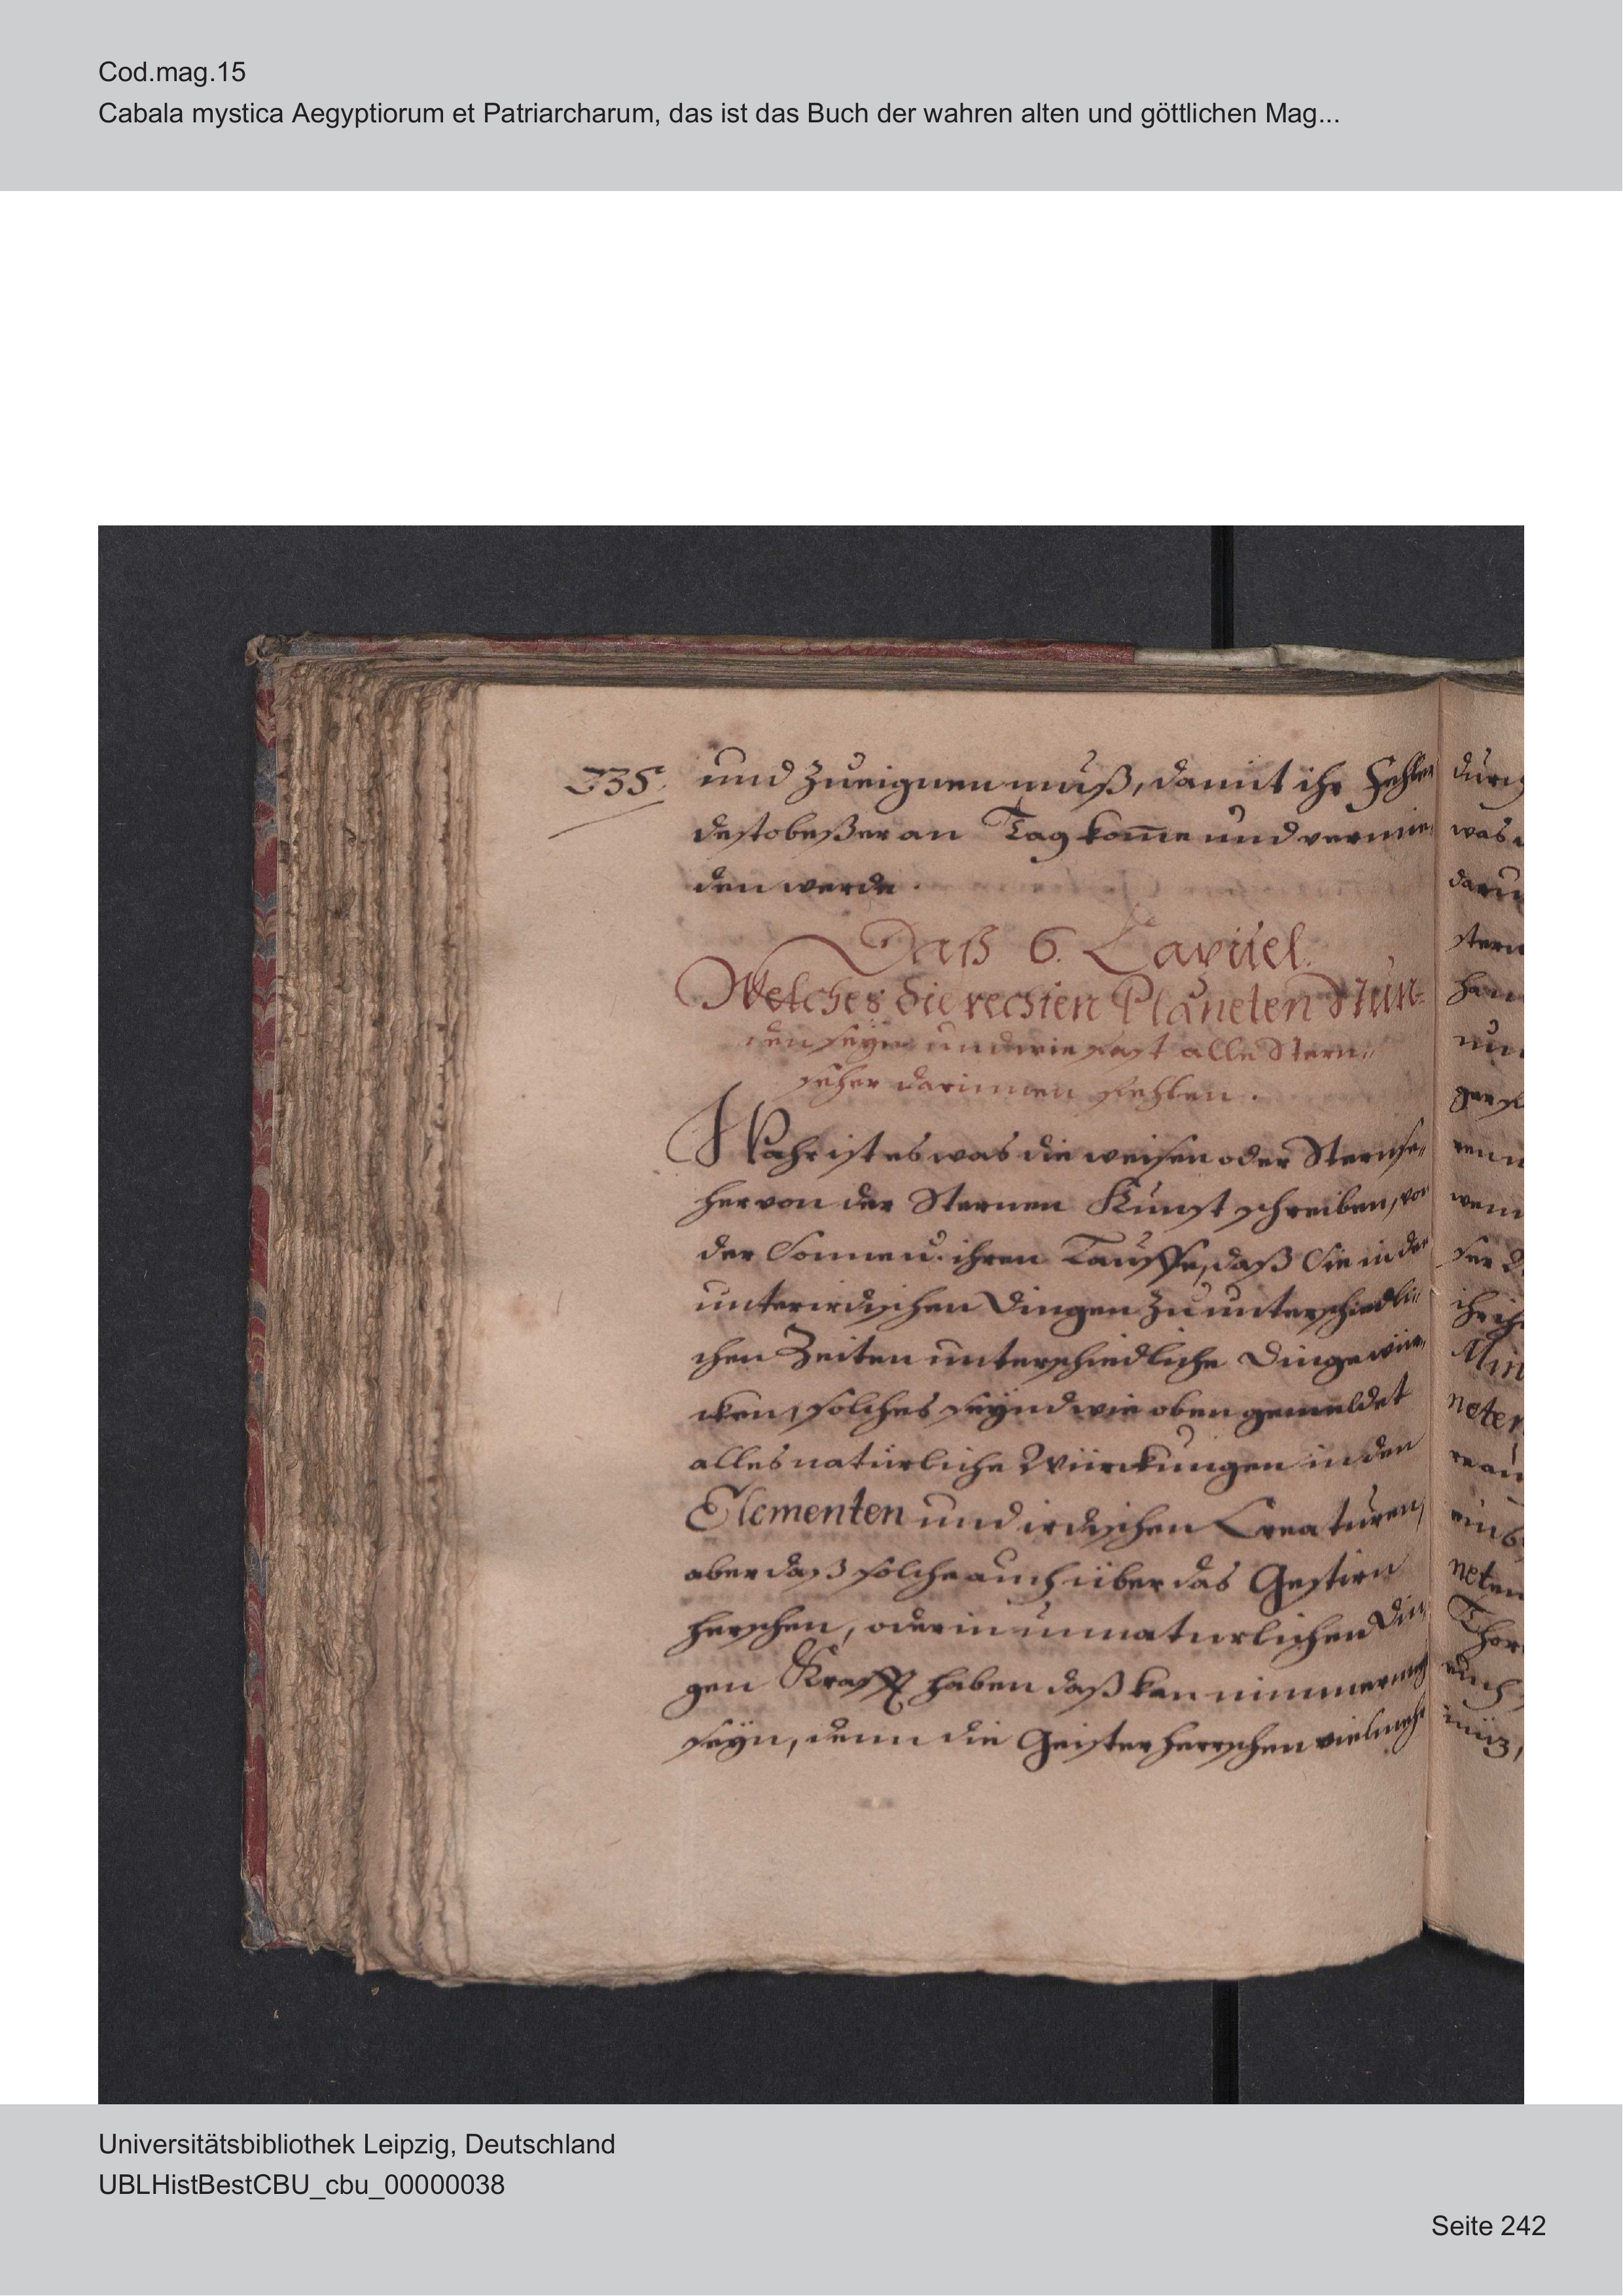 Cod.mag.15
Cabala mystica Aegyptiorum et Patriarcharum, das ist das Buch der wahren alten und göttlichen Mag...
235.
und zueignen muß, damit ihr Fehler
desto beßer an Tag kom̄e und vermie„
den werde.
Daß 6. Capitel.
Welches die rechten Planeten Stun=
den seyn und wie fast alle Stern„
seher darinnen fehlen.
Wahr ist es was die weisen oder Sternse„
her von der Sternen Kunst schreiben, von
der Sonnen u. ihren Lauffe, daß Sie in der
unterirdischen Dingen zu unterschiedli„
chen Zeiten unterschiedliche Dinge wür„
cken, solches seynd wie oben gemeldet
alles natürliche Würckungen in den
Elementen und irdischen Creaturen,
aber daß solche auch über das Gestirn
herschen, oder in unnaturlichen Din„
gen Krafft haben daß kan nimmermeh
seyn, denn die Geister herrschen vielmehr
was
neten
Universitätsbibliothek Leipzig, Deutschland
UBLHistBestCBU_cbu_00000038
Seite 242